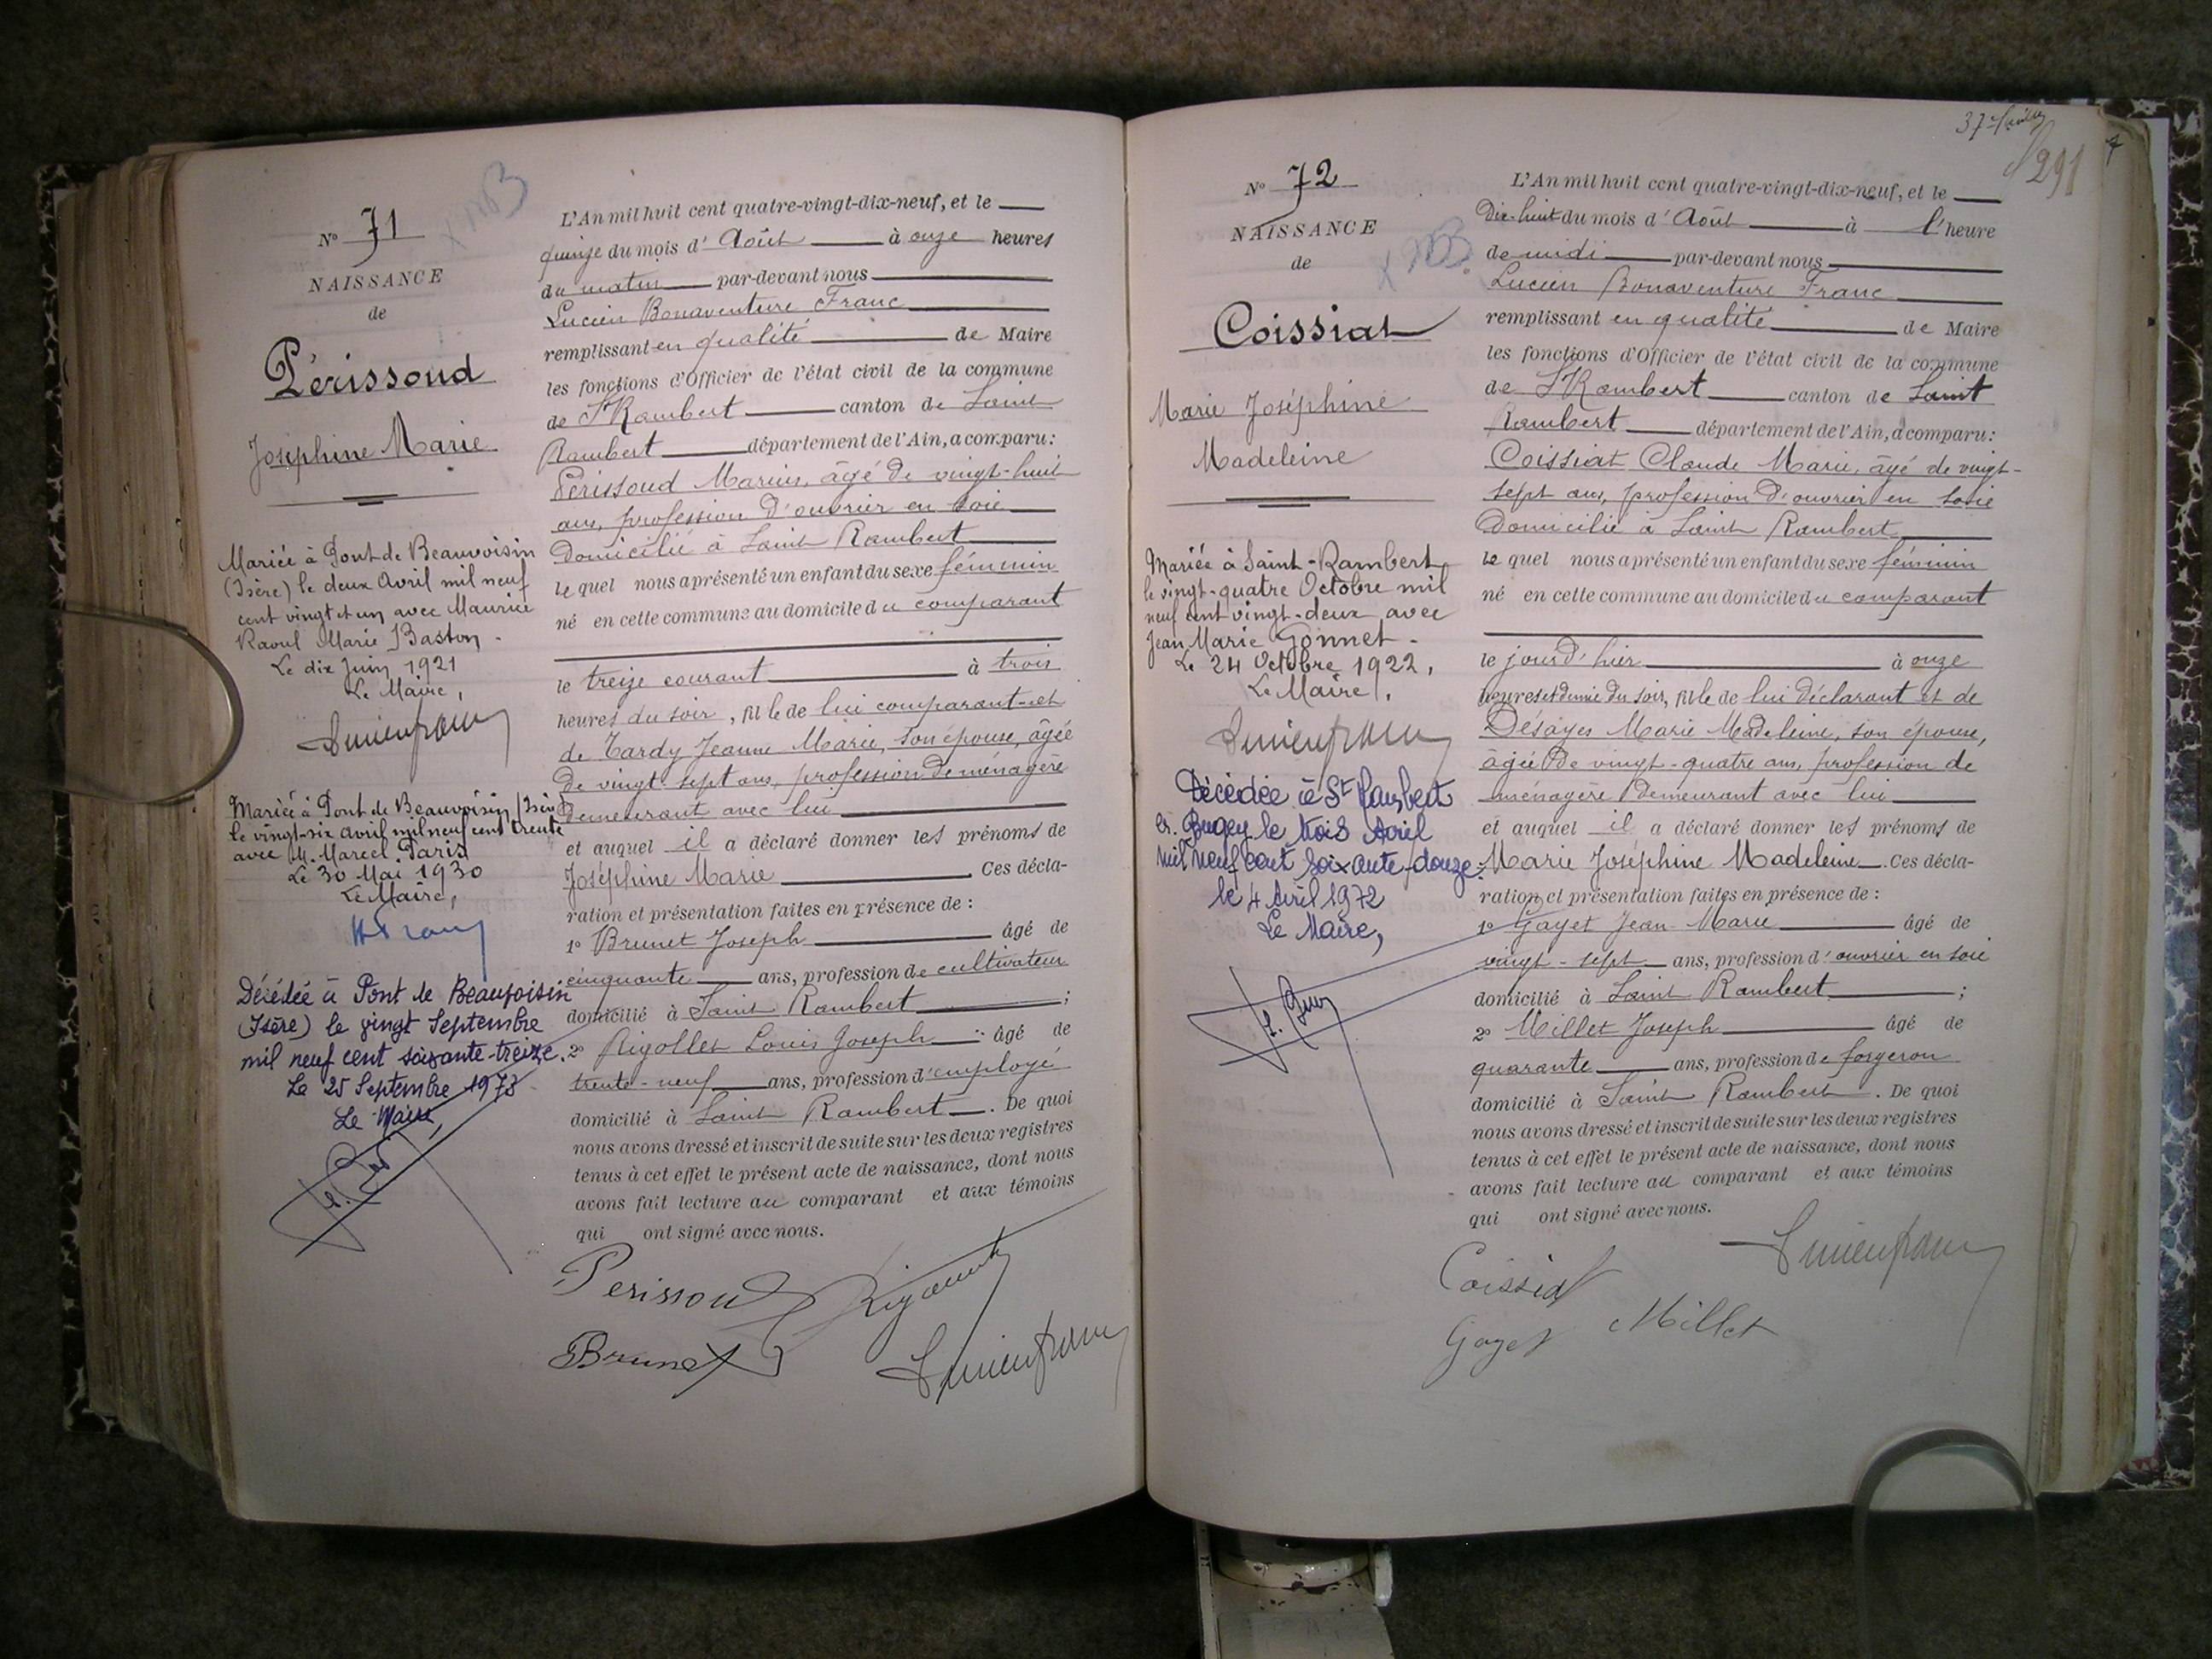 N° 71
NAISSANCE
de
Périssoud
Joséphine Marie
Mariée à Pont de Beauvoisin
(Isère) le deux Avril mil neuf
cent vingt et un avec Maurice
Raoul Marie Baston.
Le dix Juin 1921
Le Maire,
Mariée à Pont de Beauvoisin (Isère)
le vingt-six avril mil neuf cent trente
avec M. Marcel Paris
Le 30 Mai 1930
Le Maire,
Décédée à Pont de Beauvoisin
(Isère) le vingt Septembre
mil neuf cent soixante-treize.
Le 25 Septembre 1973
Le Maire,
L'An mil huit cent quatre-vingt-dix-neuf, et le
quinze du mois d'Août à onze heures
du matin par-devant nous
Lucien Bonaventure Franc
remplissant en qualité de Maire
les fonctions d'Officier de l'état civil de la commune
de St Rambert canton de Saint
Rambert département de l'Ain, a comparu:
Périssoud Marius, âgé de vingt-huit
ans, profession d'ouvrier en soie
domicilié à Saint Rambert
le quel nous a présenté un enfant du sexe féminin
né en cette commune au domicile du comparant
le treize courant à trois
heures du soir, fille de lui comparant et
de Tardy Jeanne Marie, son épouse, âgée
de vingt-sept ans, profession de ménagère
demeurant avec lui
et auquel il a déclaré donner les prénoms de
Joséphine Marie Ces décla-
ration et présentation faites en présence de :
1° Brunet Joseph âgé de
cinquante ans, profession de cultivateur
domicilié à Saint Rambert ;
2° Rigollet Louis Joseph âgé de
trente-neuf ans, profession d'employé
domicilié à Saint Rambert. De quoi
nous avons dressé et inscrit de suite sur les deux registres
tenus à cet effet le présent acte de naissance, dont nous
avons fait lecture au comparant et aux témoins
qui ont signé avec nous.
Perissoud
Brunet
37e feuillet
291
N° 72
NAISSANCE
de
Coissiat
Marie Joséphine
Madeleine
Mariée à Saint-Rambert
le vingt-quatre Octobre mil
neuf cent vingt-deux avec
Jean Marie Gonnet.
Le 24 Octobre 1922,
Le Maire,
Décédée à St Rambert
en Bugey le trois Avril
mil neuf cent soixante-douze.
le 4 Avril 1972
Le Maire,
L'An mil huit cent quatre-vingt-dix-neuf, et le
Dix-huit du mois d'Août à l'heure
de midi par-devant nous
Lucien Bonaventure Franc
remplissant en qualité de Maire
les fonctions d'Officier de l'état civil de la commune
de St Rambert canton de Saint
Rambert département de l'Ain, a comparu:
Coissiat Claude Marie, âgé de vingt-
sept ans, profession d'ouvrier en soie
Domicilié à Saint Rambert
le quel nous a présenté un enfant du sexe féminin
né en cette commune au domicile du comparant
le jour d'hier à onze
heures et demie du soir, fille de lui déclarant et de
Désayes Marie Madeleine, son épouse,
âgée de vingt-quatre ans, profession de
ménagère demeurant avec lui
et auquel il a déclaré donner les prénoms de
Marie Joséphine Madeleine. Ces décla-
ration et présentation faites en présence de :
1° Gayet Jean-Marie âgé de
vingt-sept ans, profession d'ouvrier en soie
domicilié à Saint Rambert ;
2° Millet Joseph âgé de
quarante ans, profession de forgeron
domicilié à Saint Rambert. De quoi
nous avons dressé et inscrit de suite sur les deux registres
tenus à cet effet le présent acte de naissance, dont nous
avons fait lecture au comparant et aux témoins
qui ont signé avec nous.
Coissiat
Gayet Millet